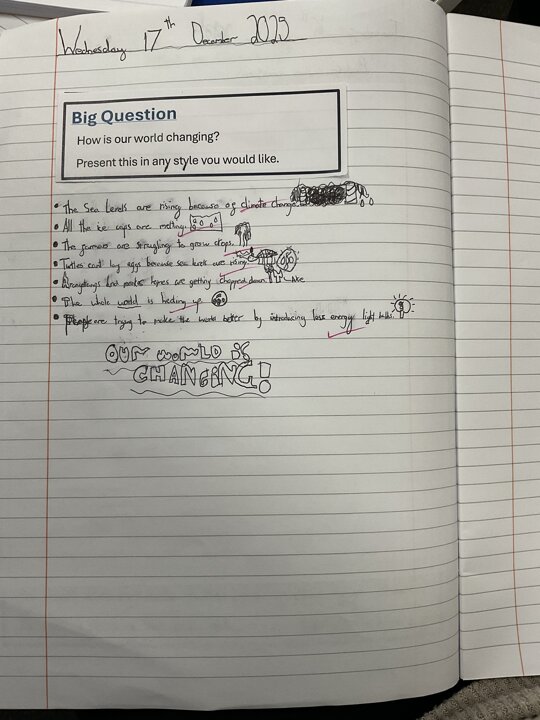 Wednesday 17th December 2025
Big Question
How is our world changing?
Present this in any style you would like.
• The Sea Levels are rising because of climate change.
• All the ice caps are melting.
• The farmers are strugling to grow crops.
• Turtles cant lay eggs because sea levels are rising.
• and homes are getting chopped down.
• The whole world is heating up
• People are trying to make the world better by introducing less energy light bulbs.
OUR WORLD IS
CHANGING!